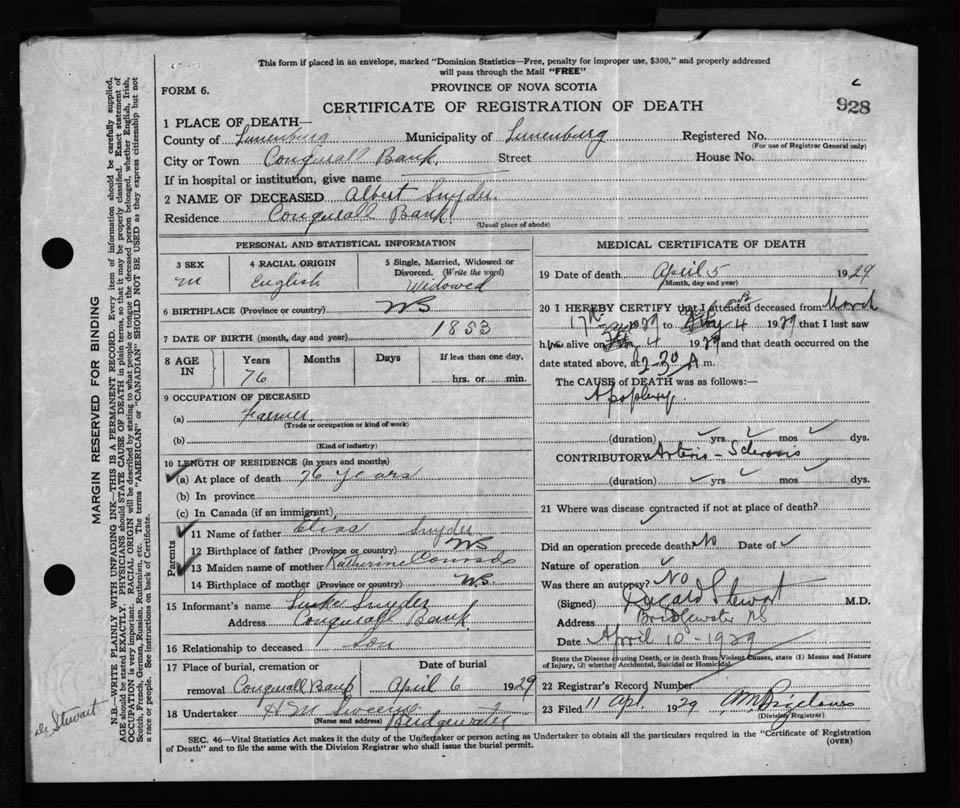 This form if placed in an envelope, marked "Dominion Statistics—Free, penalty for improper use, $300," and properly addressed
will pass through the Mail "FREE"
FORM 6.
PROVINCE OF NOVA SCOTIA
c
928
CERTIFICATE OF REGISTRATION OF DEATH
1 PLACE OF DEATH—
County of Lunenburg Municipality of Lunenburg Registered No.
(For use of Registrar General only)
City or Town Conquerall Bank. Street House No.
If in hospital or institution, give name
2 NAME OF DECEASED Albert Snyder
Residence Conquerall Bank
(Usual place of abode)
PERSONAL AND STATISTICAL INFORMATION
3 SEX 4 RACIAL ORIGIN 5 Single, Married, Widowed or
Divorced. (Write the word)
M English Widowed
6 BIRTHPLACE (Province or country) NS
7 DATE OF BIRTH (month, day and year) 1853
8 AGE IN Years Months Days If less than one day,
76 hrs. or min.
9 OCCUPATION OF DECEASED
(a) Farmer
(Trade or occupation or kind of work)
(b)
(Kind of industry)
10 LENGTH OF RESIDENCE (in years and months)
(a) At place of death 76 years
(b) In province
(c) In Canada (if an immigrant)
Parents
11 Name of father Elias Snyder
12 Birthplace of father (Province or country) NS
13 Maiden name of mother Katherine
14 Birthplace of mother (Province or country) NS
15 Informant's name Snyder
Address Conquerall Bank
16 Relationship to deceased Son
17 Place of burial, cremation or Date of burial
removal Conquerall Bank April 6 1929
18 Undertaker H M
(Name and address) Bridgewater
MEDICAL CERTIFICATE OF DEATH
19 Date of death April 5 1929
(Month, day and year)
20 I HEREBY CERTIFY that I attended deceased from March
17th 1929 to 4 1929 that I last saw
him alive on 4 1929 and that death occurred on the
date stated above, at 2-30 A m.
The CAUSE of DEATH was as follows:—
Apoplexy
(duration) yrs mos dys.
CONTRIBUTORY Arterio-Sclerosis
(duration) yrs. mos. dys.
21 Where was disease contracted if not at place of death?
Did an operation precede death No Date of
Nature of operation
Was there an autopsy? No
(Signed) Stewart M.D.
Address Bridgewater NS
Date April 10-1929
State the Disease causing Death, or in death from Violent Causes, state (1) Means and Nature
of Injury, (2) whether Accidental, Suicidal or Homicidal
22 Registrar's Record Number
23 Filed 11 Apl. 1929
(Division Registrar)
SEC. 46—Vital Statistics Act makes it the duty of the Undertaker or person acting as Undertaker to obtain all the particulars required in the "Certificate of Registration
of Death" and to file the same with the Division Registrar who shall issue the burial permit.
(OVER)
MARGIN RESERVED FOR BINDING
N.B.—WRITE PLAINLY WITH UNFADING INK—THIS IS A PERMANENT RECORD. Every item of information should be carefully supplied.
AGE should be stated EXACTLY. PHYSICIANS should STATE CAUSE OF DEATH in plain terms, so that it may be properly classified. Exact statement of
OCCUPATION is very important. RACIAL ORIGIN will be described by stating to what people or tongue the deceased person belonged, whether English, Irish,
Scotch, French, German, Russian, Ruthenian, etc. The terms "AMERICAN" or "CANADIAN" SHOULD NOT BE USED as they express citizenship but not
a race or people. See instructions on back of Certificate.
Stewart